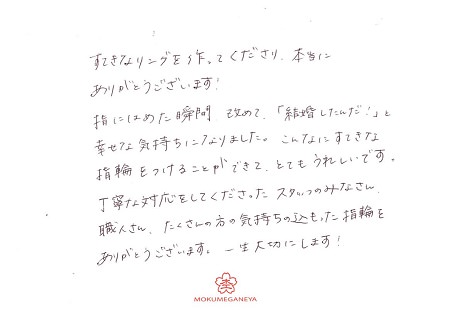 すてきなリングを作ってくださり、本当に
ありがとうございます!
指にはめた瞬間、改めて、「結婚したんだ!」と
幸せな気持ちになりました。こんなにすてきな
指輪をつけることができて、とてもうれしいです。
丁寧な対応をしてくださったスタッフのみなさん、
職人さん、たくさんの方の気持ちの込もった指輪を
ありがとうございます。一生大切にします!
杢
MOKUMEGANEYA